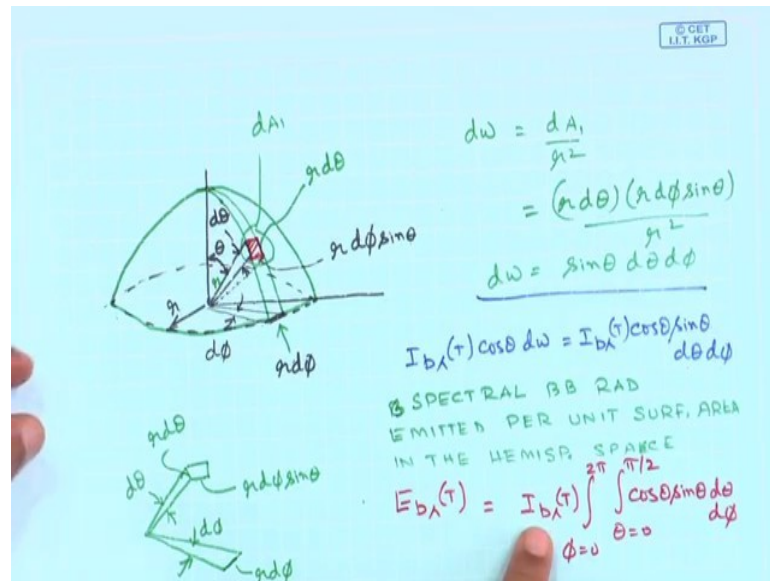 © CET
I.I.T. KGP
dA₁
rdθ
dθ
θ
r
rdφsinθ
r
dφ
rdφ
dω = dA₁/r²
= (rdθ)(rdφsinθ)/r²
dω = sinθ dθ dφ
I_bλ(T) cosθ dω = I_bλ(T) cosθ sinθ
dθ dφ
SPECTRAL BB RAD
EMITTED PER UNIT SURF. AREA
IN THE HEMISP. SPACE
E_bλ(T) = I_bλ(T) ∫_{φ=0}^{2π} ∫_{θ=0}^{π/2} cosθ sinθ dθ
dφ
rdθ
dθ
rdφsinθ
dφ
rdφ